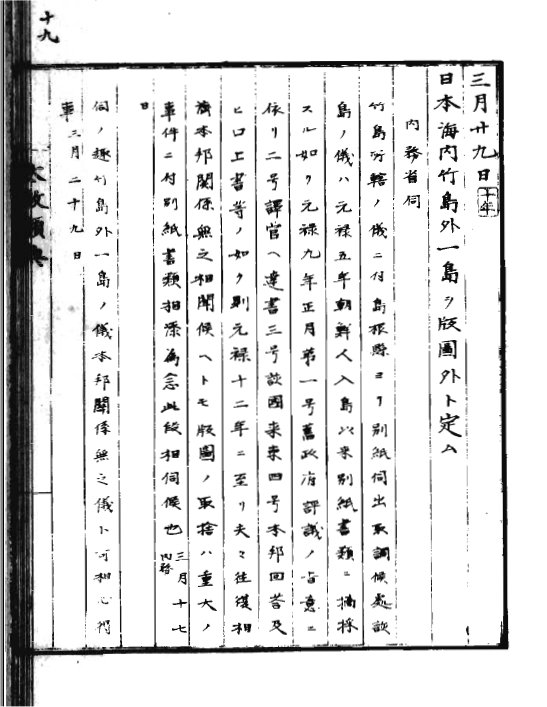 十九
三月廿九日 十年
日本海内竹島外一島ヲ版圖外ト定ム
内務省伺
竹島所轄ノ儀ニ付島根縣ヨリ別紙伺出取調候處該
島ノ儀ハ元禄五年朝鮮人入島以来別紙書類ニ摘採
スル如ク元禄九年正月第一号舊政府評議ノ旨意ニ
依リ二号譯官ヘ達書三号該國来柬四号本邦回答及
ヒ口上書等ノ如ク則元禄十二年ニ至リ夫々往復相
濟本邦関係無之相聞候ヘトモ版圖ノ取捨ハ重大ノ
事件ニ付別紙書類相添為念此段相伺候也 三月十七
日 内務
伺ノ趣竹島外一島ノ儀本邦關係無之儀ト可相心得
事 三月二十九日
太政類典